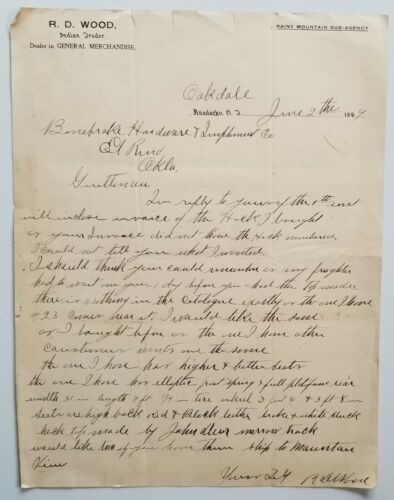 R. D. WOOD,
Indian Trader.
Dealer in GENERAL MERCHANDISE.
RAINY MOUNTAIN SUB-AGENCY
Oakdale
Anadarko, O. T. June 2the 1899
Boneprake Hardware & Implement Co
El Reno
Okla.
Gentlemen
In reply to yours of the
will inclose invoice of the Hack I bought
as your Invoice did not have the Hack numbered
I could not tell you what I wanted
I should think you could remember as my freighter
had to wait on your day before you had the top made
there is nothing in the Catalogue exactly as the one I have
423 comes near it. I would like the same
as I bought before as the one I have other
Customer wants one the same
the one I have has higher & better seats
the one I have has elliptic front spring & full platform rear
width 31 in length 7 ft tire wheel 3 feet 4 & 3 ft 8 in
Seats are high back red & black leather brake & white duck
hack top made by John Deer narrow track
would like two if you have them ship to Mountain
View
Yours R D Wood